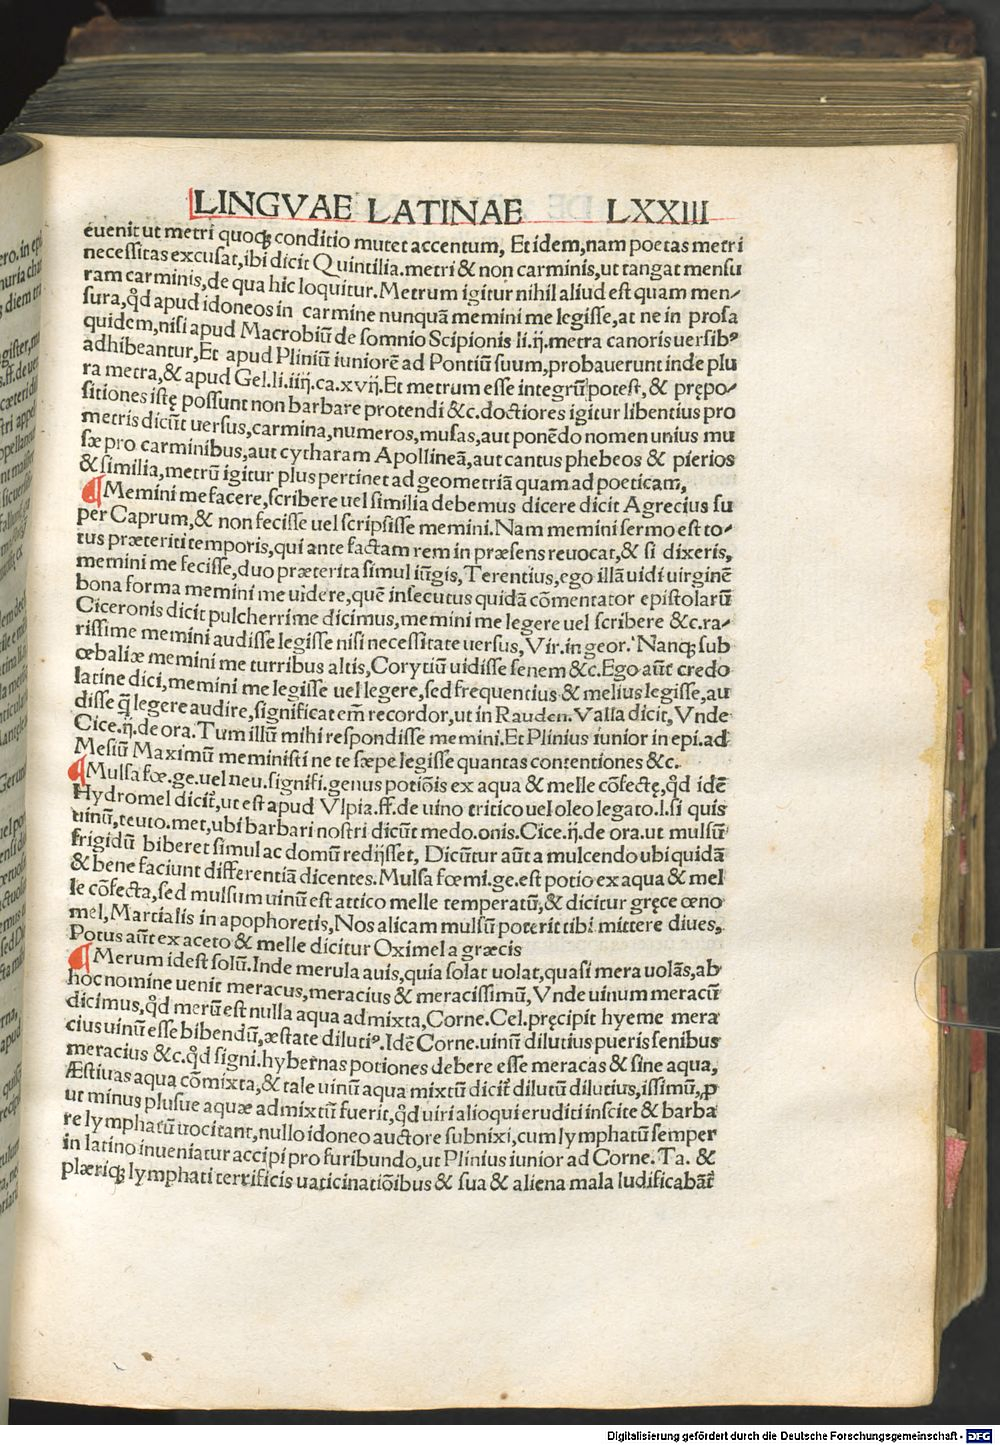 LINGVAE LATINAE LXXIII
euenit ut metri quoqꝫ conditio mutet accentum, Et idem, nam poetas metri
necessitas excusat, ibi dicit Quintilia. metri & non carminis, ut tangat mensu
ram carminis, de qua hic loquitur. Metrum igitur nihil aliud est quam men⸗
sura, qd̓ apud idoneos in carmine nunquã memini me legisse, at ne in prosa
quidem, nisi apud Macrobiũ de somnio Scipionis li. ij. metra canoris uersibꝰ
adhibeantur, Et apud Pliniũ iuniorẽ ad Pontiũ suum, probauerunt inde plu
ra metra, & apud Gel. li. iiij. ca. xvij. Et metrum esse integrũ potest, & prępo⸗
sitiones istę possunt non barbare protendi &c. doctiores igitur libentius pro
metris dicũt uersus, carmina, numeros, musas, aut ponẽdo nomen unius mu
sæ pro carminibus, aut cytharam Apollineã, aut cantus phebeos & pierios
& similia, metrũ igitur plus pertinet ad geometriã quam ad poeticam,
¶ Memini me facere, scribere uel similia debemus dicere dicit Agrecius su
per Caprum, & non fecisse uel scripsisse memini. Nam memini sermo est to⸗
tus præteriti temporis, qui ante factam rem in præsens reuocat, & si dixeris,
memini me fecisse, duo præterita simul iũgis, Terentius, ego illã uidi uirginẽ
bona forma memini me uidere, quẽ insecutus quidã cõmentator epistolarũ
Ciceronis dicit pulcherrime dicimus, memini me legere uel scribere &c. ra⸗
rissime memini audisse legisse nisi necessitate uersus, Vir. in geor. Nanqꝫ sub
œbaliæ memini me turribus altis, Corytiũ uidisse senem &c. Ego aũt credo
latine dici, memini me legisse uel legere, sed frequentius & melius legisse, au
disse q̃ legere audire, significat em̃ recordor, ut in Rauden. Valla dicit, Vnde
Cice. ij. de ora. Tum illũ mihi respondisse memini. Et Plinius iunior in epi. ad
Mesiũ Maximũ meministi ne te sæpe legisse quantas contentiones &c.
¶ Mulsa fœ. ge. uel neu. signifi. genus potiõis ex aqua & melle cõfectę, qd̓ idẽ
Hydromel dicit᷑, ut est apud Vlpia. ff. de uino tritico uel oleo legato. l. si quis
uinũ, teuto. met, ubi barbari nostri dicũt medo. onis. Cice. ij. de ora. ut mulsũ
frigidũ biberet simul ac domũ redijsset, Dicũtur aũt a mulcendo ubi quidã
& bene faciunt differentiã dicentes. Mulsa fœmi. ge. est potio ex aqua & mel
le cõfecta, sed mulsum uinũ est attico melle temperatũ, & dicitur gręce œno
mel, Martialis in apophoretis, Nos alicam mulsũ poterit tibi mittere diues,
Potus aũt ex aceto & melle dicitur Oximel a græcis
¶ Merum idest solũ. Inde merula auis, quia solat uolat, quasi mera uolãs, ab
hoc nomine uenit meracus, meracius & meracissimũ, Vnde uinum meracũ
dicimus, qd̓ merũ est nulla aqua admixta, Corne. Cel. pręcipit hyeme mera
cius uinũ esse bibendũ, æstate dilutiꝰ. Idẽ Corne. uinũ dilutius pueris senibus
meracius &c. qd̓ signi. hybernas potiones debere esse meracas & sine aqua,
Æstiuas aqua cõmixta, & tale uinũ aqua mixtũ dicit᷑ dilutũ dilutius, issimũ, ꝓ
ut minus plusue aquæ admixtũ fuerit, qd̓ uiri alioqui eruditi inscite & barba
re lymphatũ uocitant, nullo idoneo auctore subnixi, cum lymphatũ semper
in latino inueniatur accipi pro furibundo, ut Plinius iunior ad Corne. Ta. &
plæriqꝫ lymphati terrificis uaticinatiõibus & sua & aliena mala ludificabãt᷑
Digitalisierung gefördert durch die Deutsche Forschungsgemeinschaft - DFG